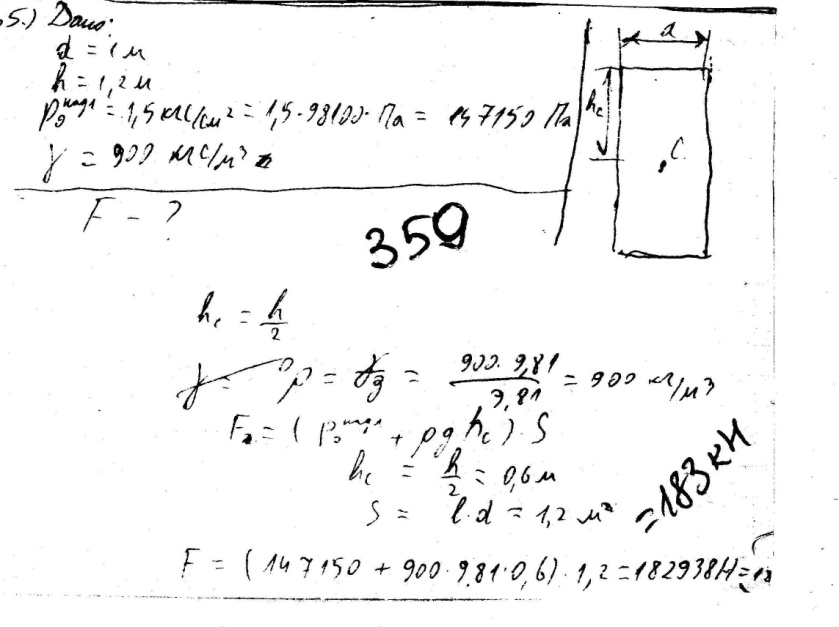 5.) Дано:
d = 1 м
h = 1,2 м
p₀ᶦᵃᵈ = 1,5 кгс/см² = 1,5·98100· Па = 147150 Па
γ = 900 кгс/м³
F - ?
d
hc
C
359
hc = h/2
γ = ρ = γ/g = 900·9,81/9,81 = 900 кг/м³
F = (p₀ + ρghc)·S
hc = h/2 = 0,6 м
S = l·d = 1,2 м²
= 183 кН
F = (147150 + 900·9,81·0,6)·1,2 = 182938 Н =